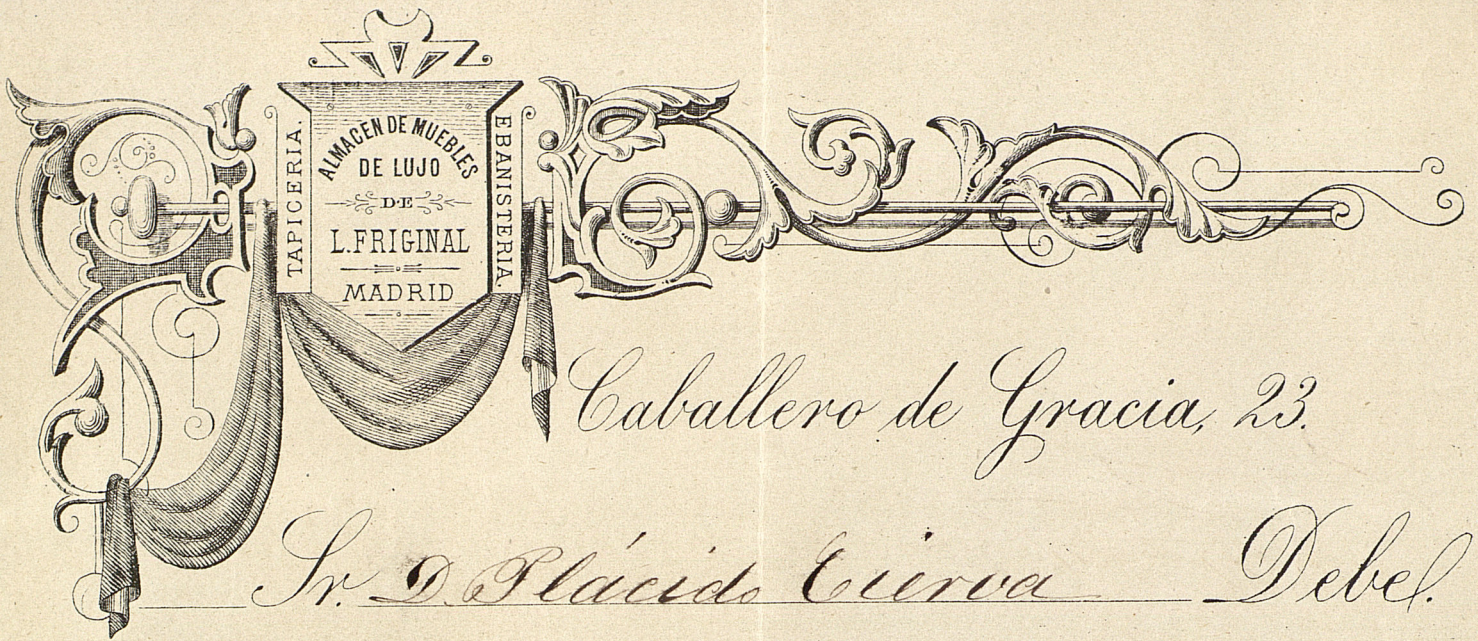 TAPICERIA.
ALMACEN DE MUEBLES
DE LUJO
DE
L. FRIGINAL
MADRID
EBANISTERIA.
Caballero de Gracia, 23.
Sr. D. Plácido Cierva Debe.